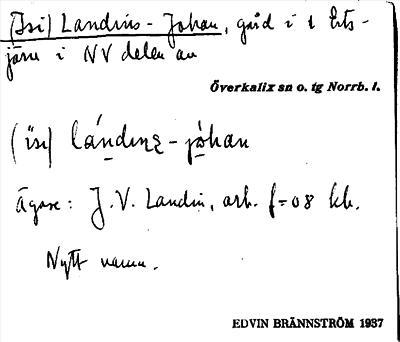 (Isi) Landins-Johan, gård i t Ets-
järv i NV delen av
Överkalix sn o. tg Norrb. l.
(ı̈sı) lándınʂ-jóhan
Ägare: J. V. Landin, arb. f=08 kb.
Nytt namn.
EDVIN BRÄNNSTRÖM 1937